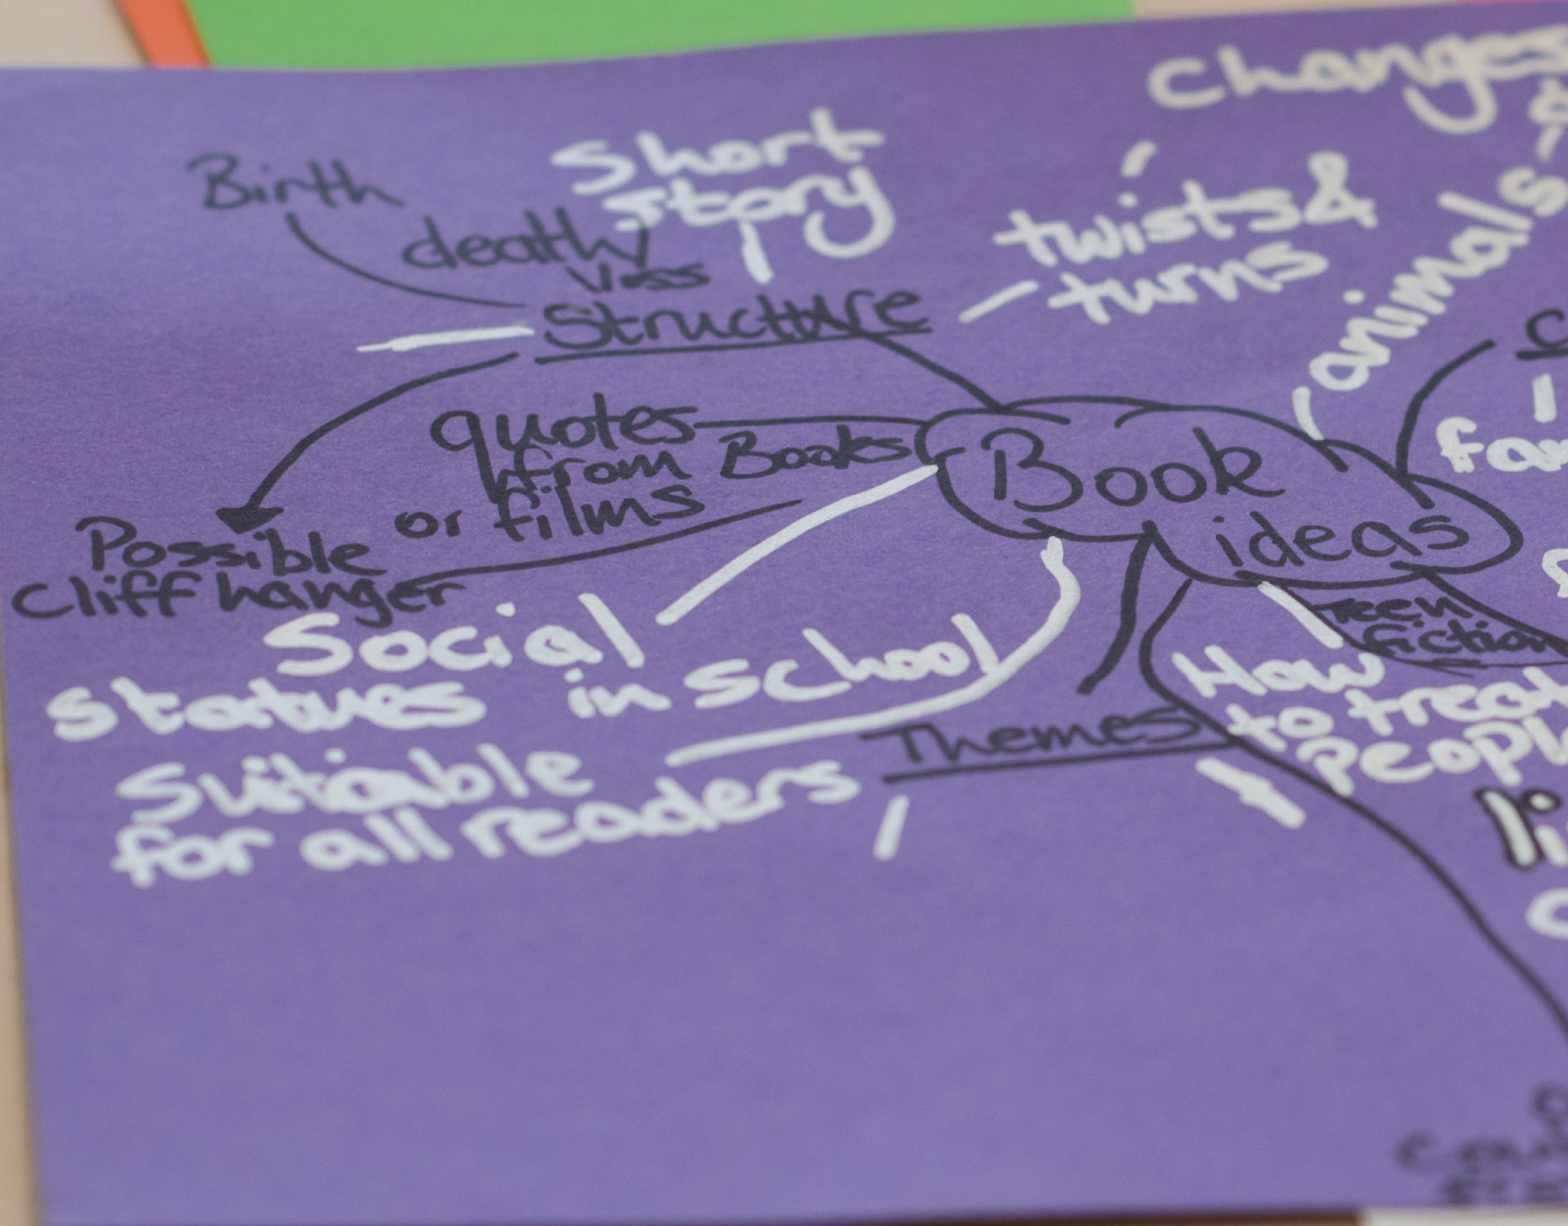 Changes
Birth
death
Short
story
Structure
twists &
turns
animals
quotes
from Books
or films
Book
ideas
Possible
Cliff hanger
Social
statues in school
Suitiable
for all readers
Themes
teen
fiction
How
to treat